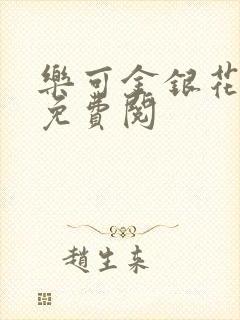 樂可金銀花
免費閱
趙生来